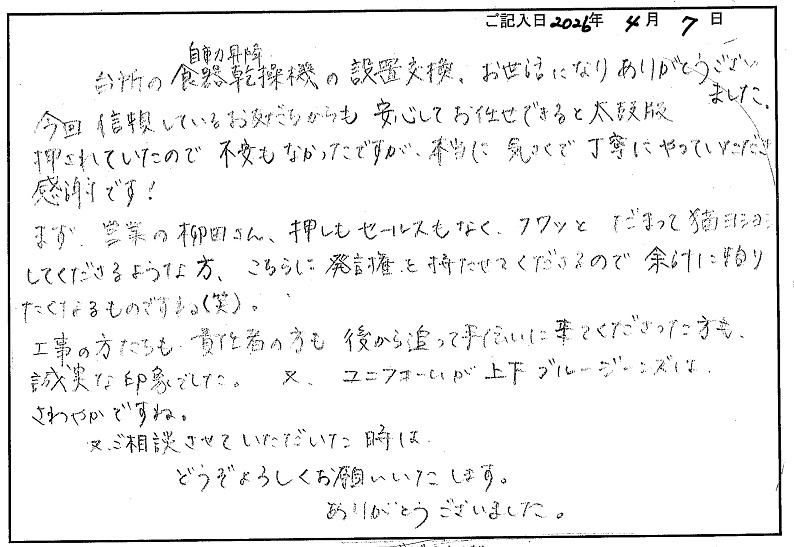 ご記入日2026年 4月 7日
自動昇降
台所の食器乾燥機の設置交換、お世話になりありがとうござい
ました。
今回信頼しているお友だちからも安心してお任せできると太鼓版
押されていたので不安もなかったですが、本当に気さくで丁寧にやっていただき
感謝です!
まず、営業の柳田さん、押しもセールスもなく、フワッとだまって
してくださるような方、こちらに発言権を持たせてくださるので余計に頼り
たくなるものですよね(笑)。
工事の方たちも、責任者の方も後から追って手伝いに来てくださった方も、
誠実な印象でした。又、ユニフォームが上下ブルージーンズは、
さわやかですね。
又、ご相談させていただいた時は
どうぞよろしくお願いいたします。
ありがとうございました。